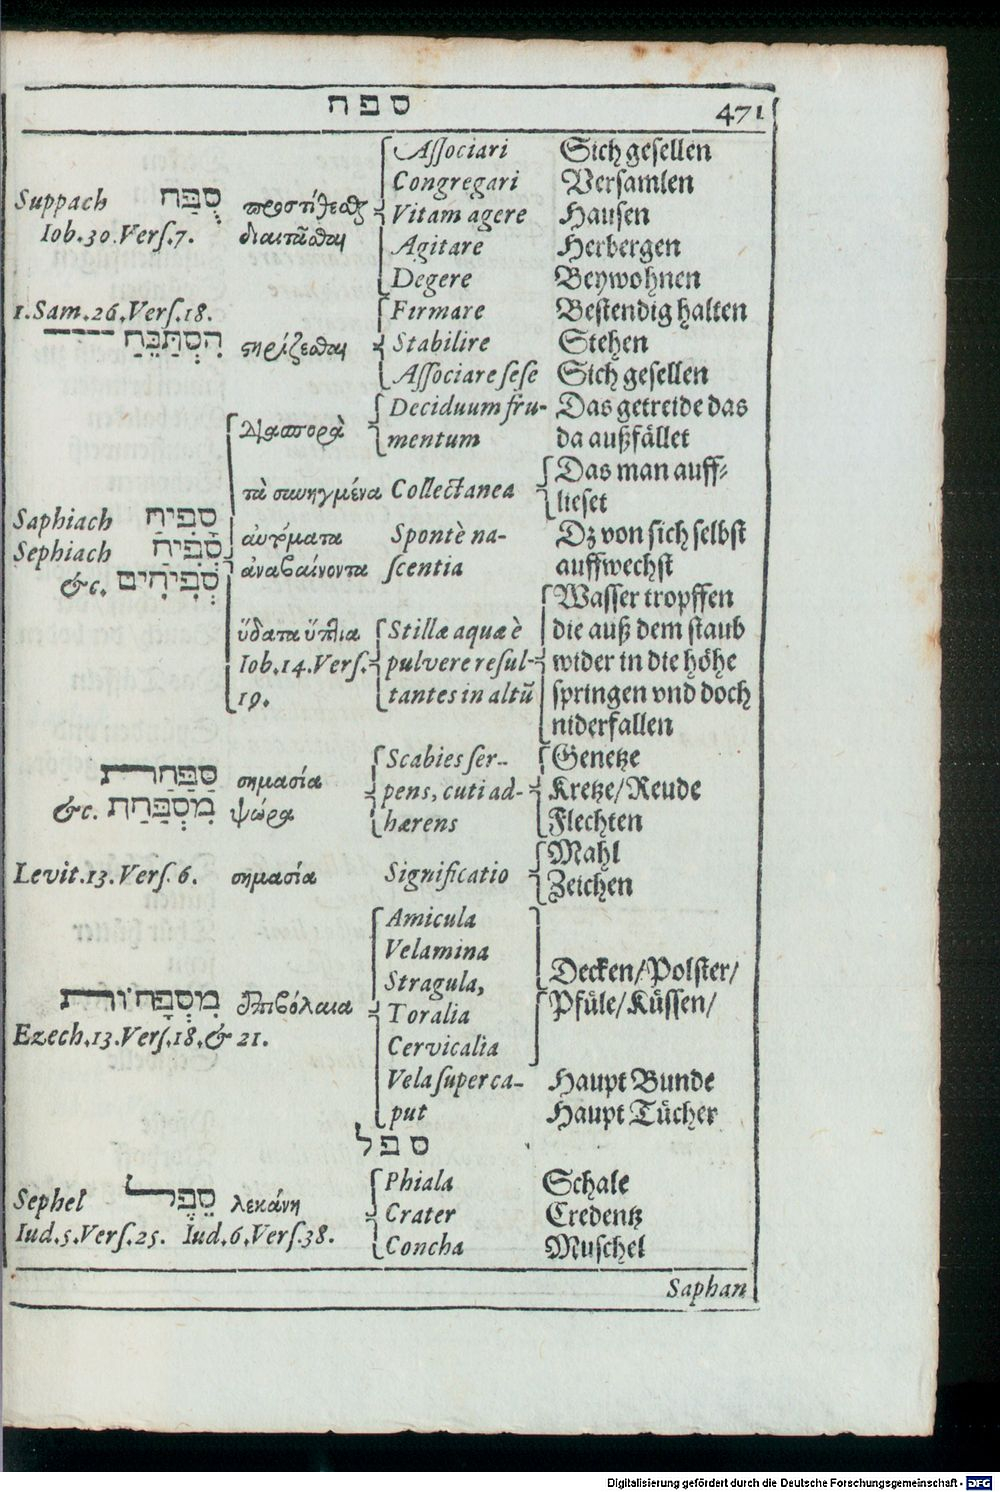 ספח 471
Associari Sich gesellen
Congregari Versamlen
Suppach סֻפַּח προςτίθεσθαι Vitam agere Hausen
Iob.30.Vers.7. διαιτᾶσθαι Agitare Herbergen
Degere Beywohnen
1.Sam.26.Vers.18. Firmare Bestendig halten
הִסְתַּפֵּחַ ςηρίζεσθαι Stabilire Stehen
Associare sese Sich gesellen
διασπορὰ Deciduum fru- Das getreide das
mentum da außfället
τὰ συνηγμένα Collectanea Das man auff-
lieset
Saphiach סָפִיחַ αὐτόματα Spontè na- Dz von sich selbst
Sephiach סְפִיחַ ἀναβαίνοντα scentia auffwechst
&c. סְפִיחִים
Wasser tropffen
ὕδατα ὕπτια Stillæ aquæ è die auß dem staub
Iob.14.Vers. pulvere resul- wider in die höhe
19. tantes in altū springen vnd doch
niderfallen
Scabies ser- Genetze
סַפַּחַת σημασία pens, cuti ad- Kretze/Reude
&c. מִסְפַּחַת ψώρα hærens Flechten
Mahl
Levit.13.Vers.6. σημασία Significatio Zeichen
Amicula
Velamina
Stragula, Decken/Polster/
מִסְפָּחוֹת ἐπιβόλαια Toralia Pfüle/Küssen/
Ezech.13.Vers.18.& 21. Cervicalia
Vela super ca- Haupt Bunde
put Haupt Tücher
ספל
Phiala Schale
Sephel סֵפֶל λεκάνη Crater Credentz
Iud.5.Vers.25. Iud.6.Vers.38. Concha Muschel
Saphan
Digitalisierung gefördert durch die Deutsche Forschungsgemeinschaft - DFG